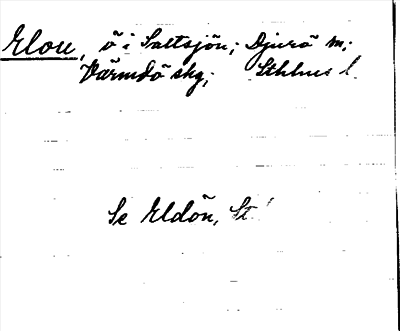 Elou, ö i Saltsjön; Djurö m;
Värmdö skg; Sthlms l.
Se Eldön, St.